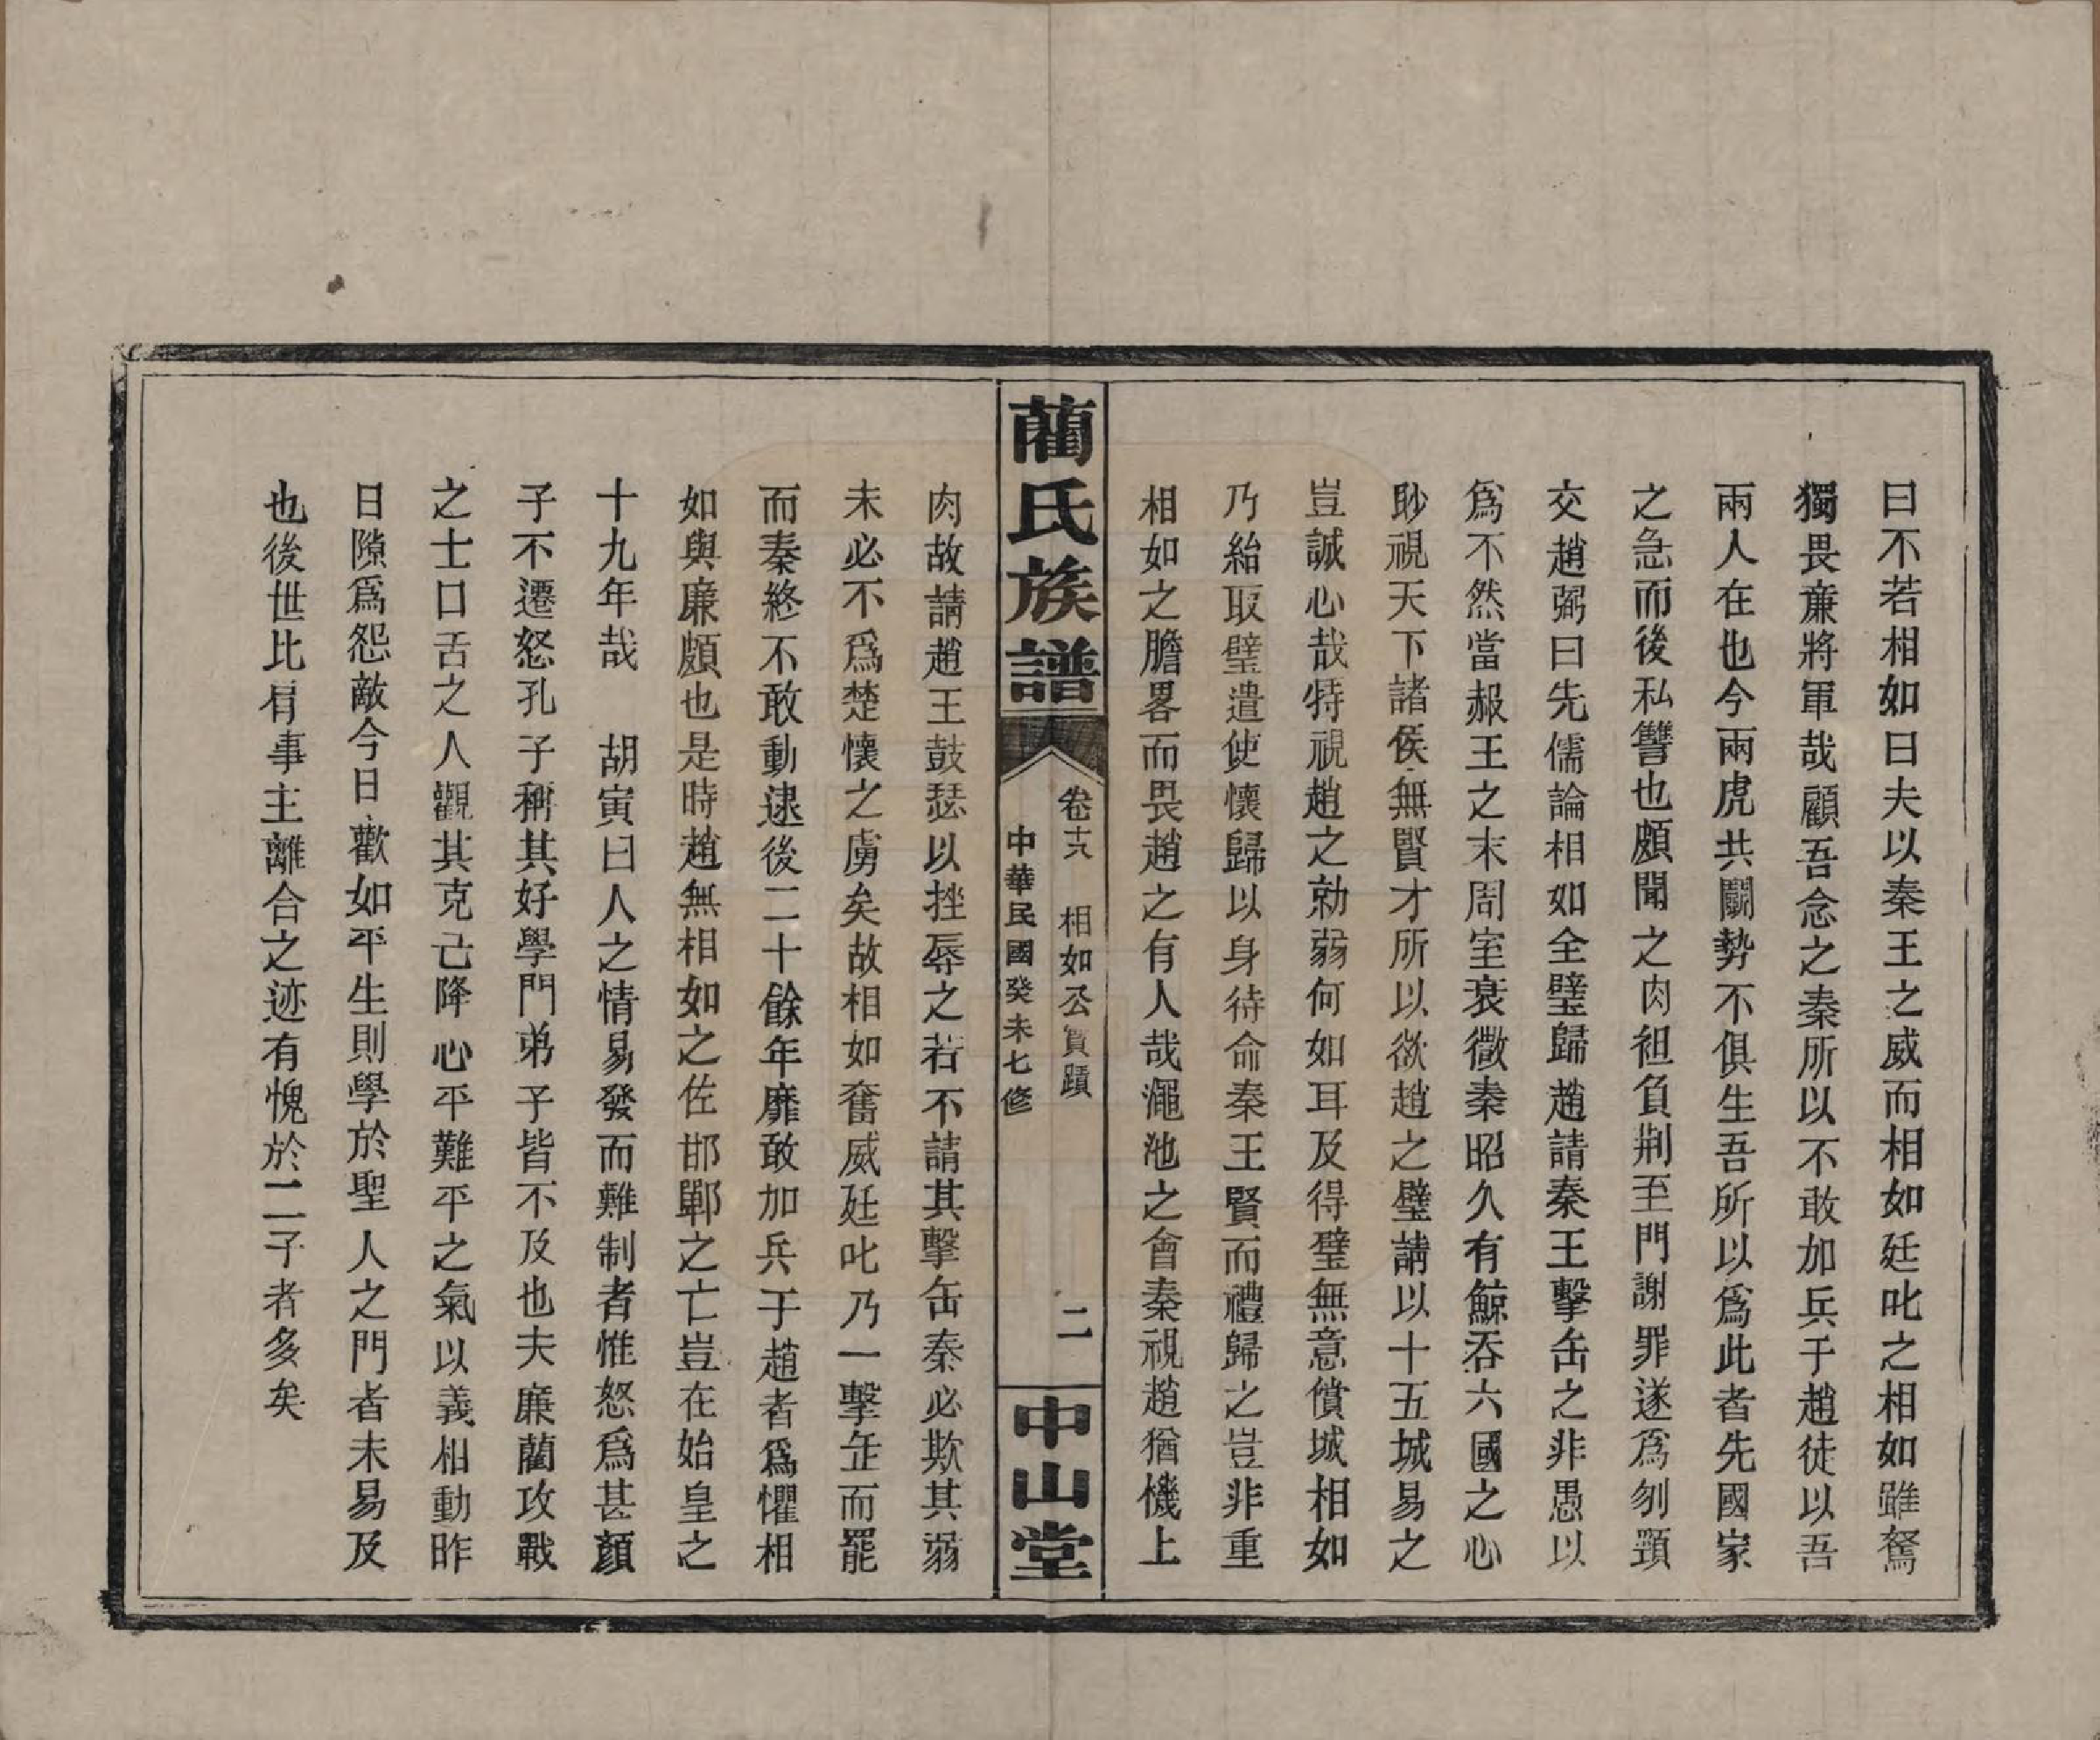 曰不若相如曰夫以秦王之威而相如廷叱之相如雖駑
獨畏亷將軍哉顧吾念之秦所以不敢加兵于趙徒以吾
兩人在也今兩虎共鬭勢不俱生吾所以爲此者先國家
之急而後私讐也頗聞之肉袒負荆至門謝罪遂爲刎頸
交趙弼曰先儒論相如全璧歸趙請秦王擊缶之非愚以
爲不然當赧王之末周室衰微秦昭久有鯨吞六國之心
眇視天下諸侯無賢才所以欲趙之璧請以十五城易之
豈誠心哉特視趙之勍弱何如耳及得璧無意償城相如
乃紿取璧遣使懷歸以身待命秦王賢而禮歸之豈非重
相如之膽畧而畏趙之有人哉澠池之會秦視趙猶機上
藺氏族譜
卷十六 相如公實蹟 二
中華民國癸未七修
中山堂
肉故請趙王鼓瑟以挫辱之若不請其擊缶秦必欺其弱
未必不爲楚懷之虜矣故相如奮威廷叱乃一擊缶而罷
而秦終不敢動逮後二十餘年靡敢加兵于趙者爲懼相
如與廉頗也是時趙無相如之佐邯鄲之亡豈在始皇之
十九年哉 胡寅曰人之情易發而難制者惟怒爲甚顏
子不遷怒孔子稱其好學門弟子皆不及也夫廉藺攻戰
之士口舌之人觀其克己降心平難平之氣以義相動昨
日隙爲怨敵今日歡如平生則學於聖人之門者未易及
也後世比肩事主離合之迹有愧於二子者多矣